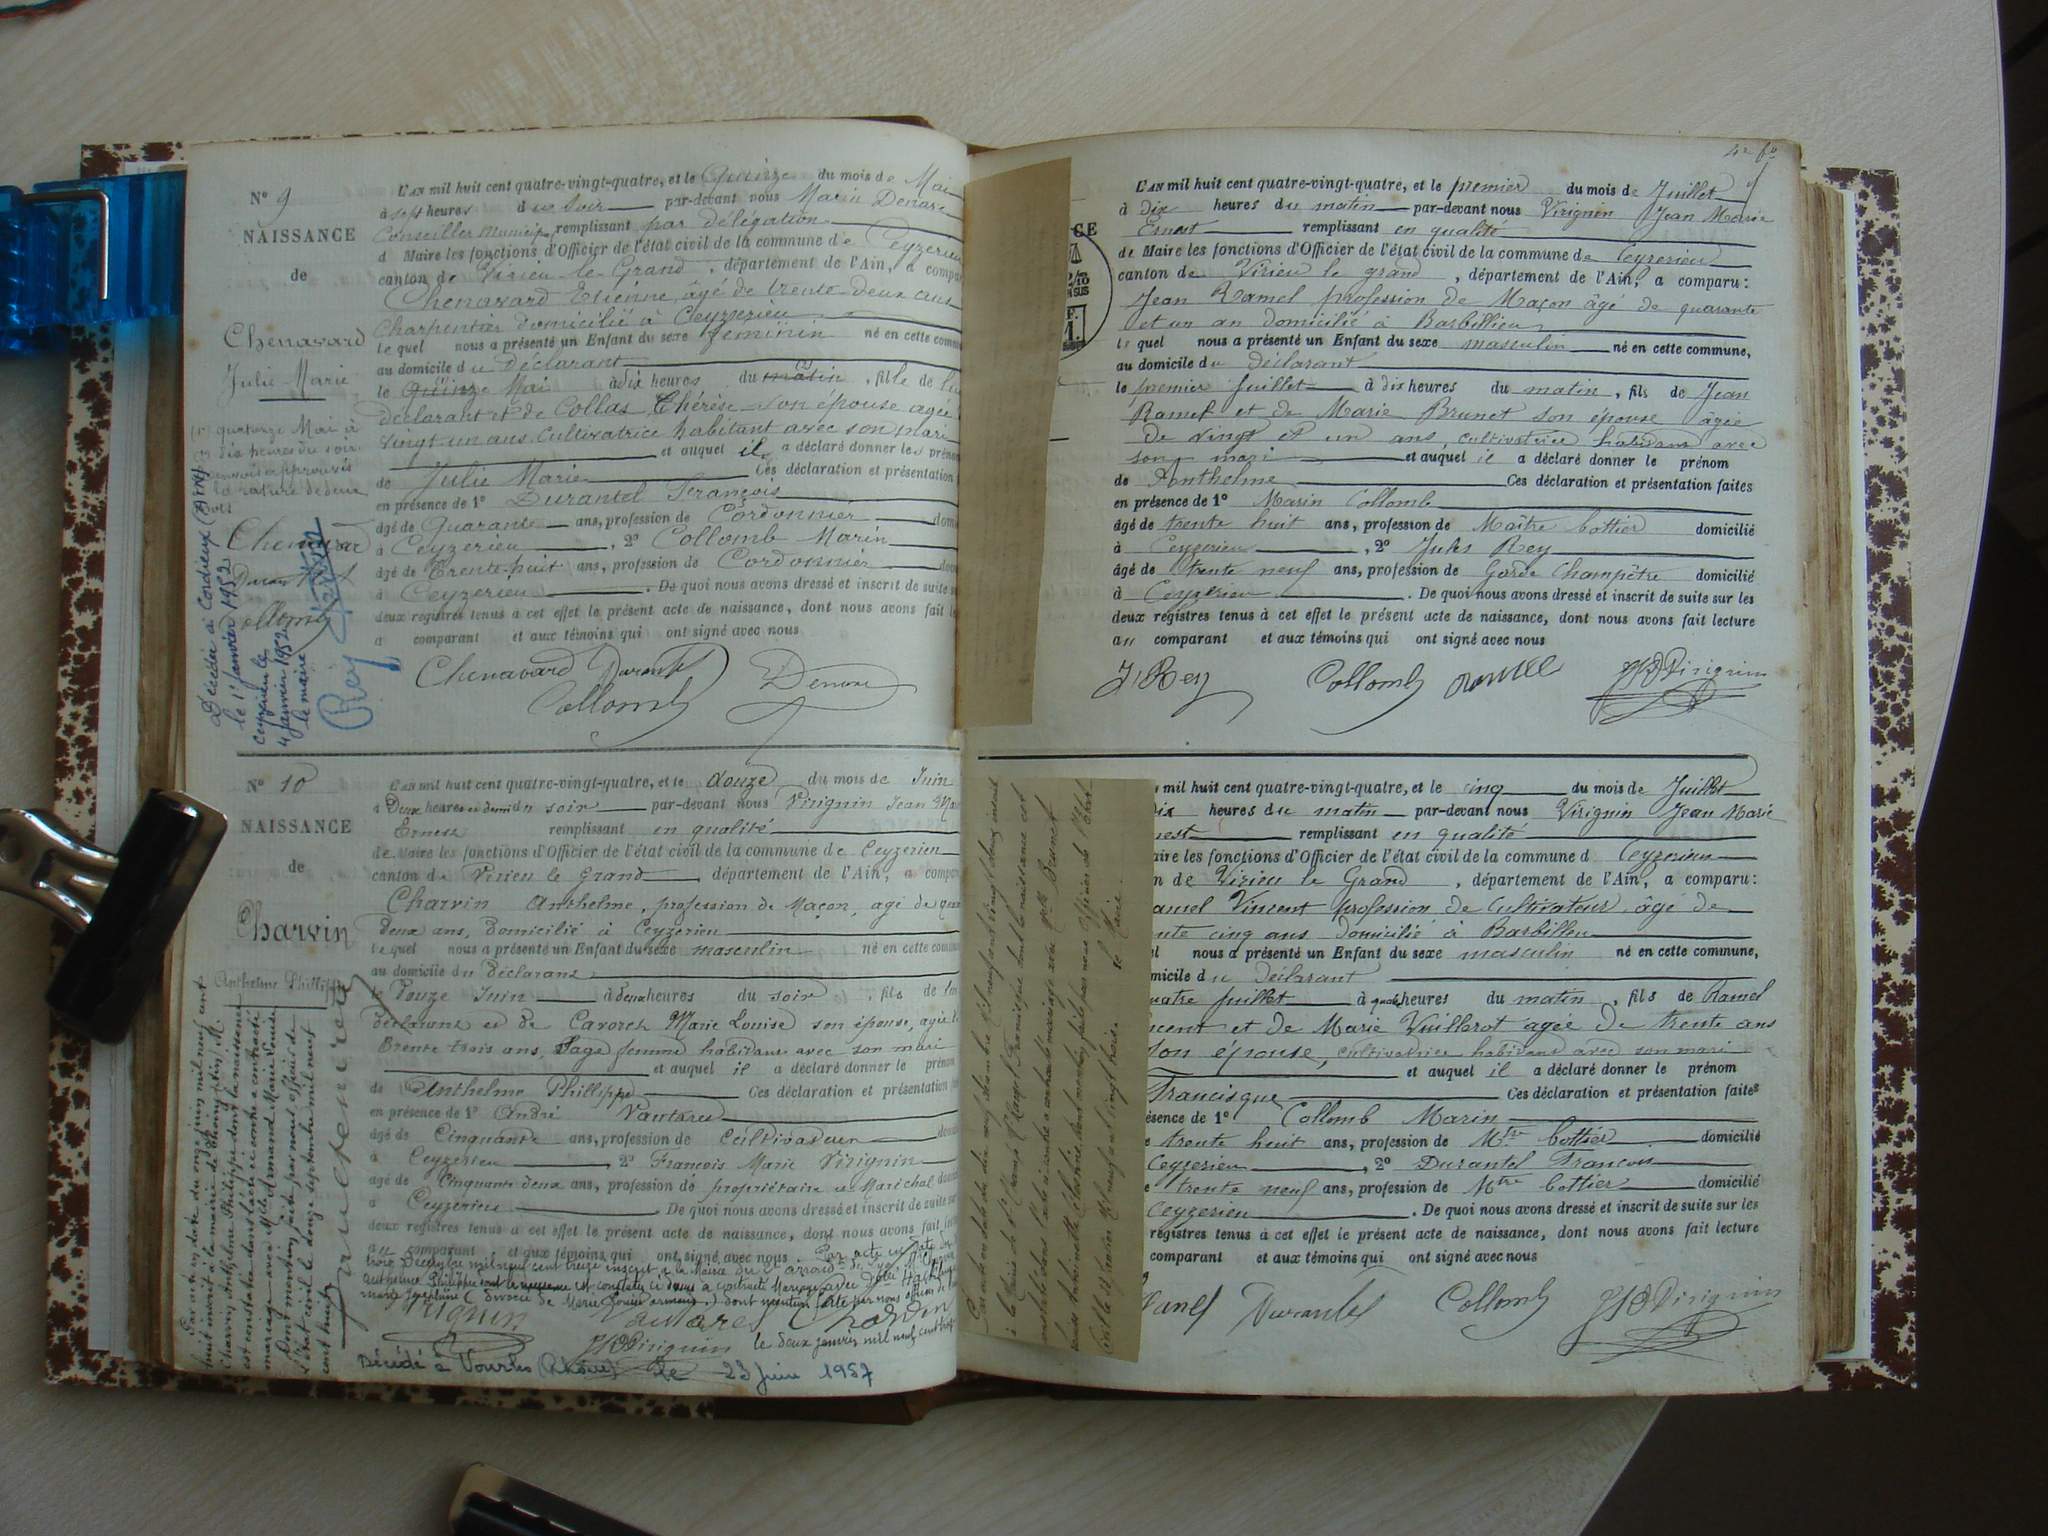 N° 9
NAISSANCE
de
Chenavard
Julie Marie
(1) quatorze Mai à
dix heures du soir
renvoi approuvés
la rature de deux
mots
Chenavard
Durantel
Collomb
Décédée à Cordieux (Ain)
le 1er janvier 1952
Ceyzerieu le
4 janvier 1952
le maire
L'AN mil huit cent quatre-vingt-quatre, et le Quinze du mois de Mai
à sept heures du soir par-devant nous Marin Denare
Conseiller Municip. remplissant par délégation
d Maire les fonctions d'Officier de l'état civil de la commune de Ceyzerieu
canton de Virieu-le-Grand, département de l'Ain, a compar
Chenavard Etienne, âgé de trente-deux ans
Charpentier domicilié à Ceyzerieu
lequel nous a présenté un Enfant du sexe féminin né en cette commu
au domicile du déclarant
le Quinze Mai à dix heures du matin, fille de lui
déclarant et de Collas Thérèse son épouse agée
vingt-un ans cultivatrice habitant avec son mari
et auquel il a déclaré donner les prénom
de Julie Marie Ces déclaration et présentation
en présence de 1° Durantel François
âgé de Quarante ans, profession de Cordonnier domi
à Ceyzerieu, 2° Collomb Marin
âgé de Trente-huit ans, profession de Cordonnier dom
à Ceyzerieu. De quoi nous avons dressé et inscrit de suite su
deux registres tenus à cet effet le présent acte de naissance, dont nous avons fait le
a comparant et aux témoins qui ont signé avec nous
Chenavard Durantel
Collomb
N° 10
NAISSANCE
de
Charvin
Anthelme Phillippe
Par acte en date du onze juin mil neuf cent
huit inscrit à la mairie de M.
Charvin Anthelme Philippe dont la naissance
est constatée dans l'acte ci-contre a contracté
mariage avec Mlle Armand Marie Louise
Dont mention faite par nous officier de
l'état civil le douze septembre mil neuf
cent huit
L'AN mil huit cent quatre-vingt-quatre, et le douze du mois de Juin
à Deux heures et demi du soir par-devant nous Virignin Jean Mar
Ernest remplissant en qualité
de Maire les fonctions d'Officier de l'état civil de la commune de Ceyzerieu
canton de Virieu le Grand, département de l'Ain, a compar
Charvin Anthelme, profession de Maçon, agé de quar
deux ans, domicilié à Ceyzerieu
lequel nous a présenté un Enfant du sexe masculin né en cette commu
au domicile du déclarant
le Douze Juin à Deux heures du soir, fils de lui
déclarant et de Marie Louise son épouse, agée
trente trois ans, Sage femme habitant avec son mari
et auquel il a déclaré donner le prénom
de Anthelme Phillippe Ces déclaration et présentation
en présence de 1° André Vantaret
âgé de Cinquante ans, profession de Cultivateur
à Ceyzerieu, 2° François Marie Virignin
agé de Cinquante deux ans, profession de propriétaire et Maréchal
à Ceyzerieu. De quoi nous avons dressé et inscrit de suite sur
deux registres tenus à cet effet le présent acte de naissance, dont nous avons fait lect
au comparant et aux témoins qui ont signé avec nous. Par acte en date du
trois Décembre mil neuf cent treize inscrit à la Mairie du
Anthelme Philippe dont la naissance est constatée ci dessus a contracté Mariage avec
marie Joséphine (divorcé de Marie Louise Armand) dont mention faite par nous officier de
Virignin Charvin
JB Virignin le deux janvier mil neuf cent
Décédé à Vourles (Rhône) le 23 Juin 1957
4e fo
L'AN mil huit cent quatre-vingt-quatre, et le premier du mois de Juillet
à Dix heures du matin par-devant nous Virignin Jean Marie
Ernest remplissant en qualité
de Maire les fonctions d'Officier de l'état civil de la commune de Ceyzerieu
canton de Virieu le grand, département de l'Ain, a comparu:
Jean Ramel profession de Maçon âgé de quarante
et un an domicilié à Barbillieu
lequel nous a présenté un Enfant du sexe masculin né en cette commune,
au domicile du déclarant
le premier Juillet à dix heures du matin, fils de Jean
Ramel et de Marie Brunet son épouse âgée
de vingt et un ans, cultivatrice habitant avec
son mari et auquel il a déclaré donner le prénom
de Anthelme Ces déclaration et présentation faites
en présence de 1° Marin Collomb
âgé de trente huit ans, profession de Maître bottier domicilié
à Ceyzerieu, 2° Jules Rey
âgé de trente neuf ans, profession de Garde Champêtre domicilié
à Ceyzerieu. De quoi nous avons dressé et inscrit de suite sur les
deux registres tenus à cet effet le présent acte de naissance, dont nous avons fait lecture
au comparant et aux témoins qui ont signé avec nous
J. Rey Collomb Ramel JB Virignin
Par acte en date du dix neuf septembre mil neuf cent vingt deux inscrit
à la Mairie de Ramel Francisque dont la naissance est
constatée dans l'acte ci-contre a contracté mariage avec Melle Brunet
mil neuf cent vingt trois. le Maire.
mil huit cent quatre-vingt-quatre, et le cinq du mois de Juillet
dix heures du matin par-devant nous Virignin Jean Marie
nest remplissant en qualité
aire les fonctions d'Officier de l'état civil de la commune d Ceyzerieu
n de Virieu le Grand, département de l'Ain, a comparu:
amel Vincent profession de Cultivateur âgé de
ente cinq ans domicilié à Barbillieu
el nous a présenté un Enfant du sexe masculin né en cette commune,
micile du déclarant
uatre Juillet à quatre heures du matin, fils de Ramel
ncent et de Marie Vuillerot agée de trente ans
son épouse, cultivatrice habitant avec son mari
et auquel il a déclaré donner le prénom
Francisque Ces déclaration et présentation faites
ésence de 1° Collomb Marin
e trente huit ans, profession de Mtre bottier domicilié
Ceyzerieu, 2° Durantel François
e trente neuf ans, profession de Mtre bottier domicilié
Ceyzerieu. De quoi nous avons dressé et inscrit de suite sur les
registres tenus à cet effet le présent acte de naissance, dont nous avons fait lecture
comparant et aux témoins qui ont signé avec nous
Ramel Durantel Collomb JB Virignin